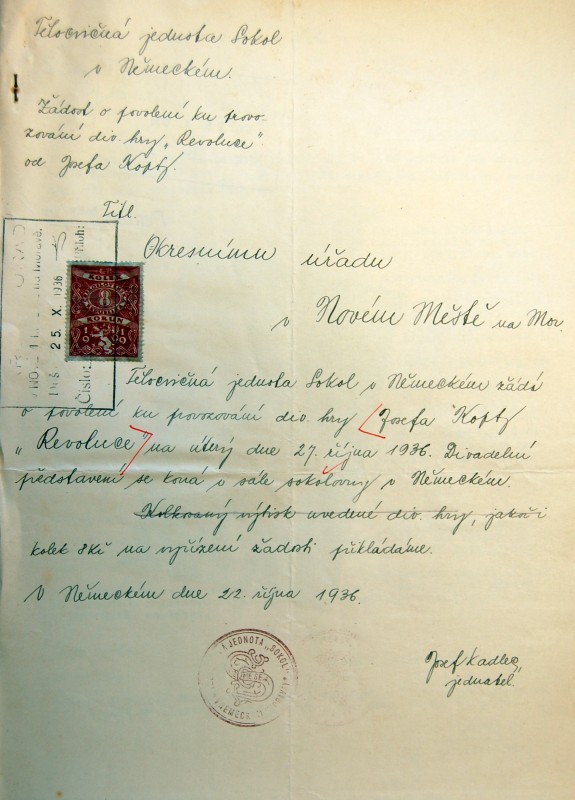 Tělocvičná jednota Sokol
v Německém.
Žádost o povolení ku provo-
zování div. hry „Revoluce"
od Josefa Kopty.
Titl.
Okresnímu úřadu
v Novém Městě na Mor.
25. X. 1936
Číslo:
KOLEK
8
KORUN
1919
Tělocvičná jednota Sokol v Německém žádá
o povolení ku provozování div. hry Josefa Kopty
„Revoluce" na úterý dne 27. října 1936. Divadelní
představení se koná v sále sokolovny v Německém.
Kolkovaný výtisk uvedené div. hry, jakož i
kolek 8Kč na vyřízení žádosti přikládáme.
V Německém dne 22. října 1936.
JEDNOTA „SOKOL"
Josef Kadlec,
jednatel.